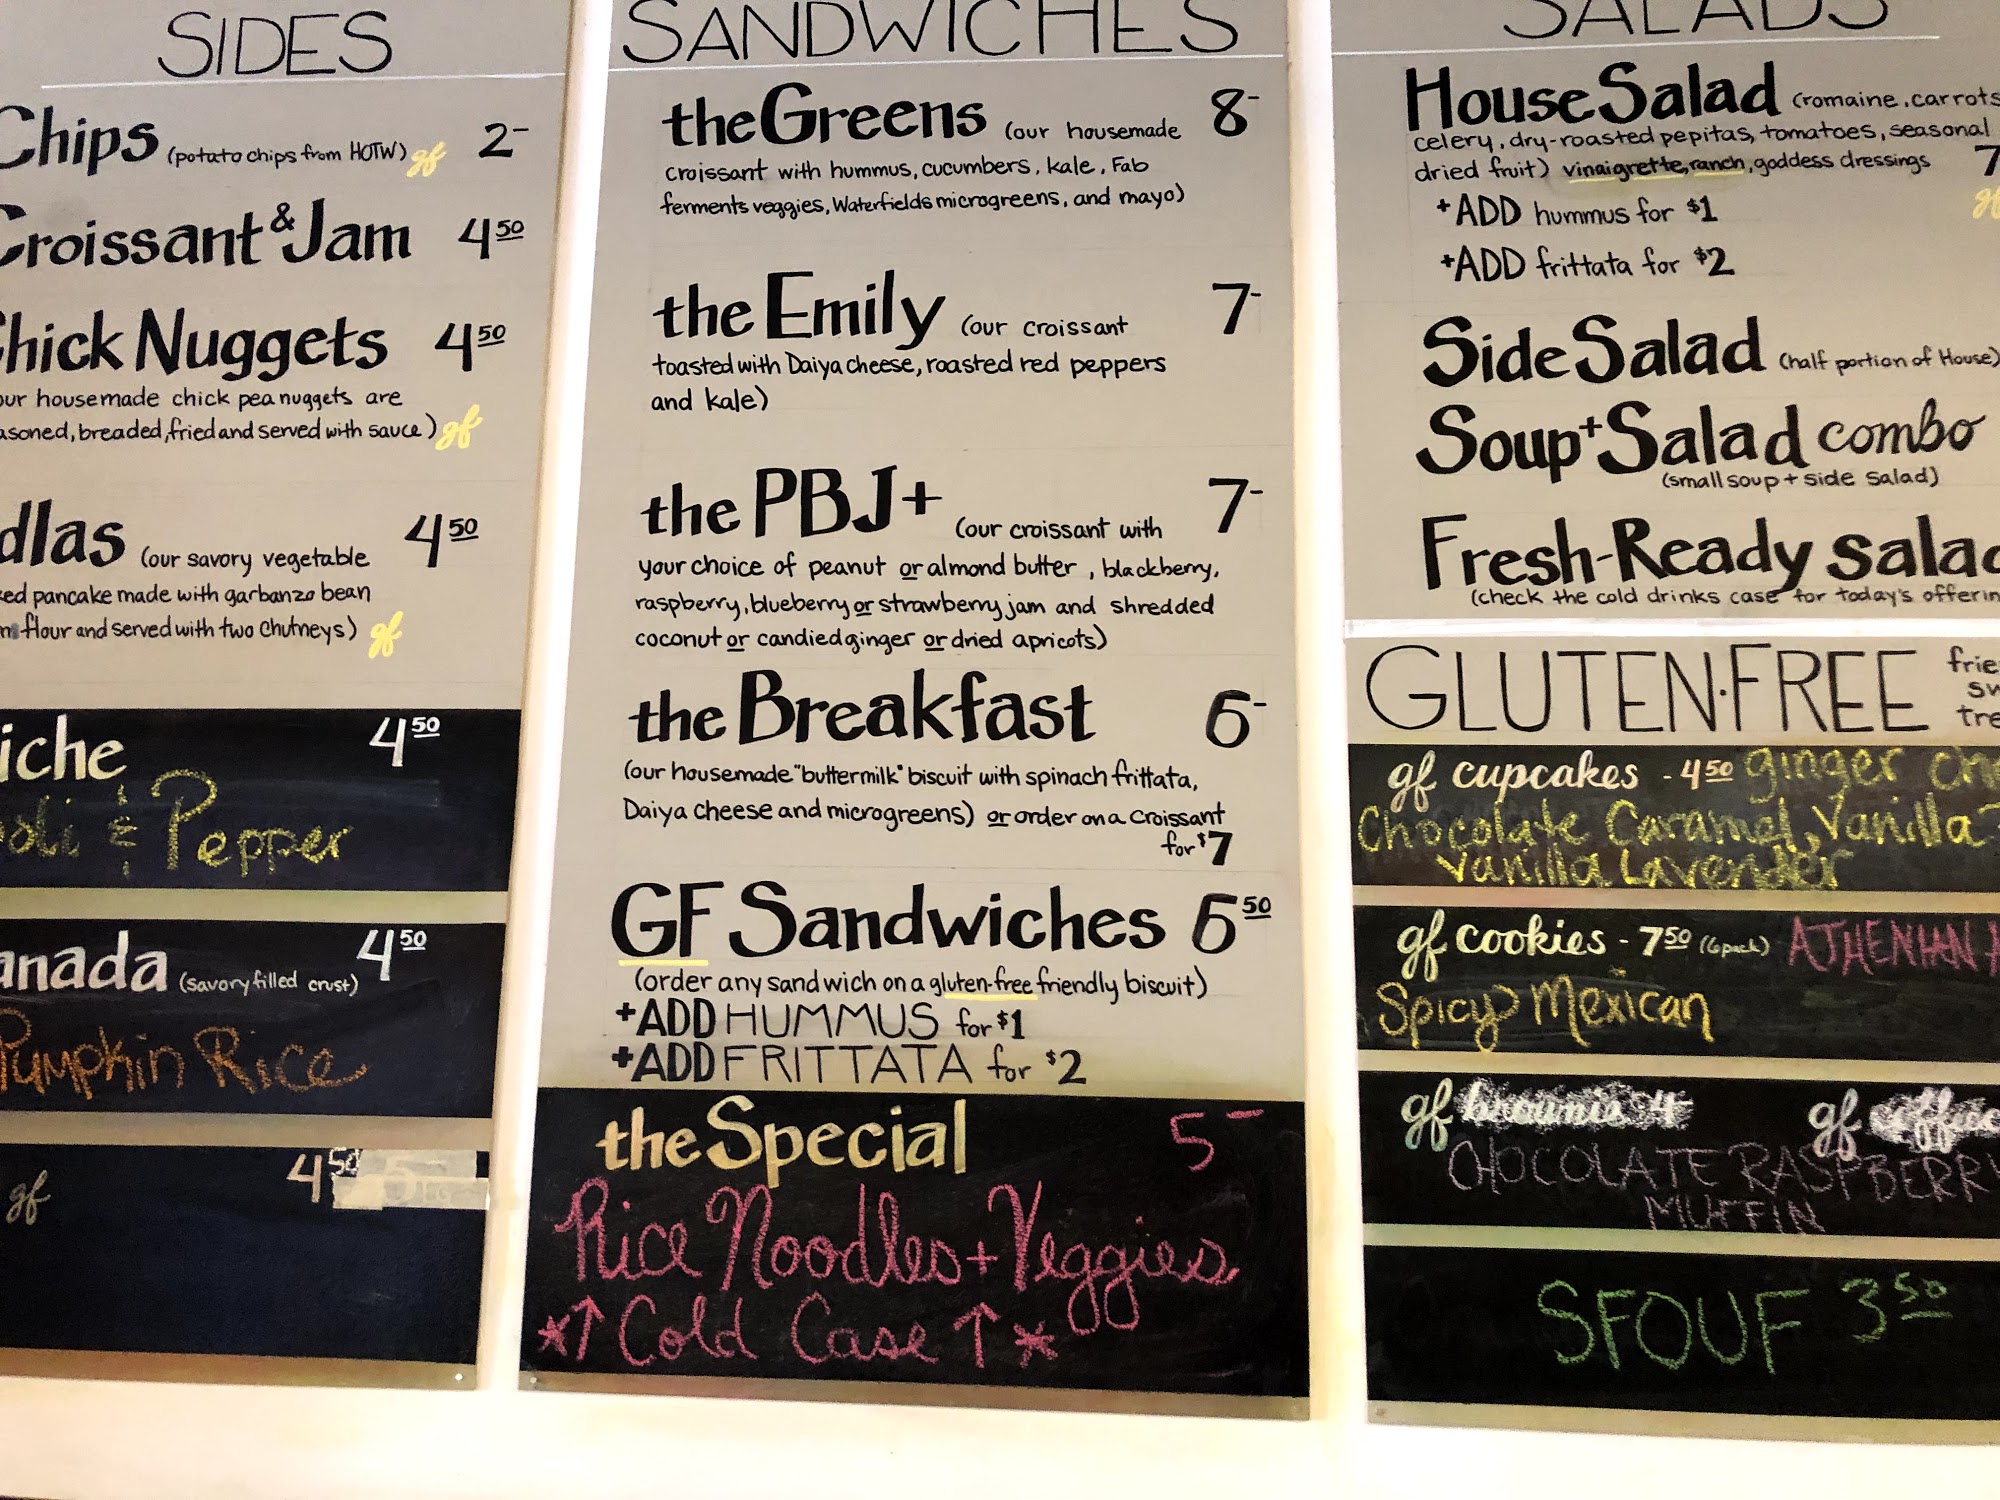 SIDES
Chips (potato chips from HOTW) gf 2-
Croissant & Jam 4 50
Chick Nuggets 4 50
our housemade chick pea nuggets are
asoned, breaded, fried and served with sauce) gf
dlas (our savory vegetable 4 50
ked pancake made with garbanzo bean
flour and served with two chutneys) gf
iche 4 50
oli & Pepper
anada (savory filled crust) 4 50
Pumpkin Rice
gf 4 50
SANDWICHES
the Greens (our housemade 8-
croissant with hummus, cucumbers, kale, Fab
ferments veggies, Waterfields microgreens, and mayo)
the Emily (our croissant 7-
toasted with Daiya cheese, roasted red peppers
and kale)
the PBJ+ (our croissant with 7-
your choice of peanut or almond butter, blackberry,
raspberry, blueberry or strawberry jam and shredded
coconut or candied ginger or dried apricots)
the Breakfast 6-
(our housemade "buttermilk" biscuit with spinach frittata,
Daiya cheese and microgreens) or order on a croissant
for $7
GF Sandwiches 6 50
(order any sandwich on a gluten-free friendly biscuit)
+ADD HUMMUS for $1
+ADD FRITTATA for $2
the Special 5-
Rice Noodles + Veggies
*↑ Cold Case ↑*
SALADS
House Salad (romaine, carrots
celery, dry-roasted pepitas, tomatoes, seasonal
dried fruit) vinaigrette, ranch, goddess dressings 7
gf
+ADD hummus for $1
+ADD frittata for $2
Side Salad (half portion of House)
Soup+Salad combo
(small soup + side salad)
Fresh-Ready salad
(check the cold drinks case for today's offerin
GLUTEN-FREE frie
sw
tre
gf cupcakes - 4 50 ginger ch
Chocolate Caramel, Vanilla
Vanilla Lavender
gf cookies - 7 50 (6 pack) ATHENIAN
Spicy Mexican
gf brownie 4 gf
CHOCOLATE RASPBERRY
MUFFIN
SFOUF 3 50